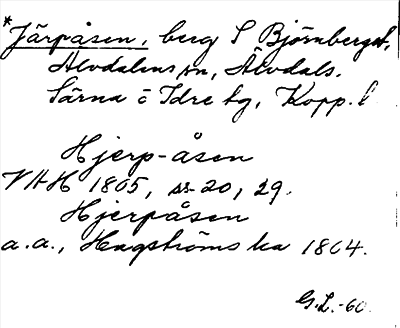 *Järpåsen, berg S Björnberget,
Älvdalens sn, Älvdals.
Särna o Idre tg, Kopp. l
Hjerp-åsen
VHH 1805, ss 20, 29.
Hjerpåsen
a.a., Hagströms ka 1804.
G.L.-60.